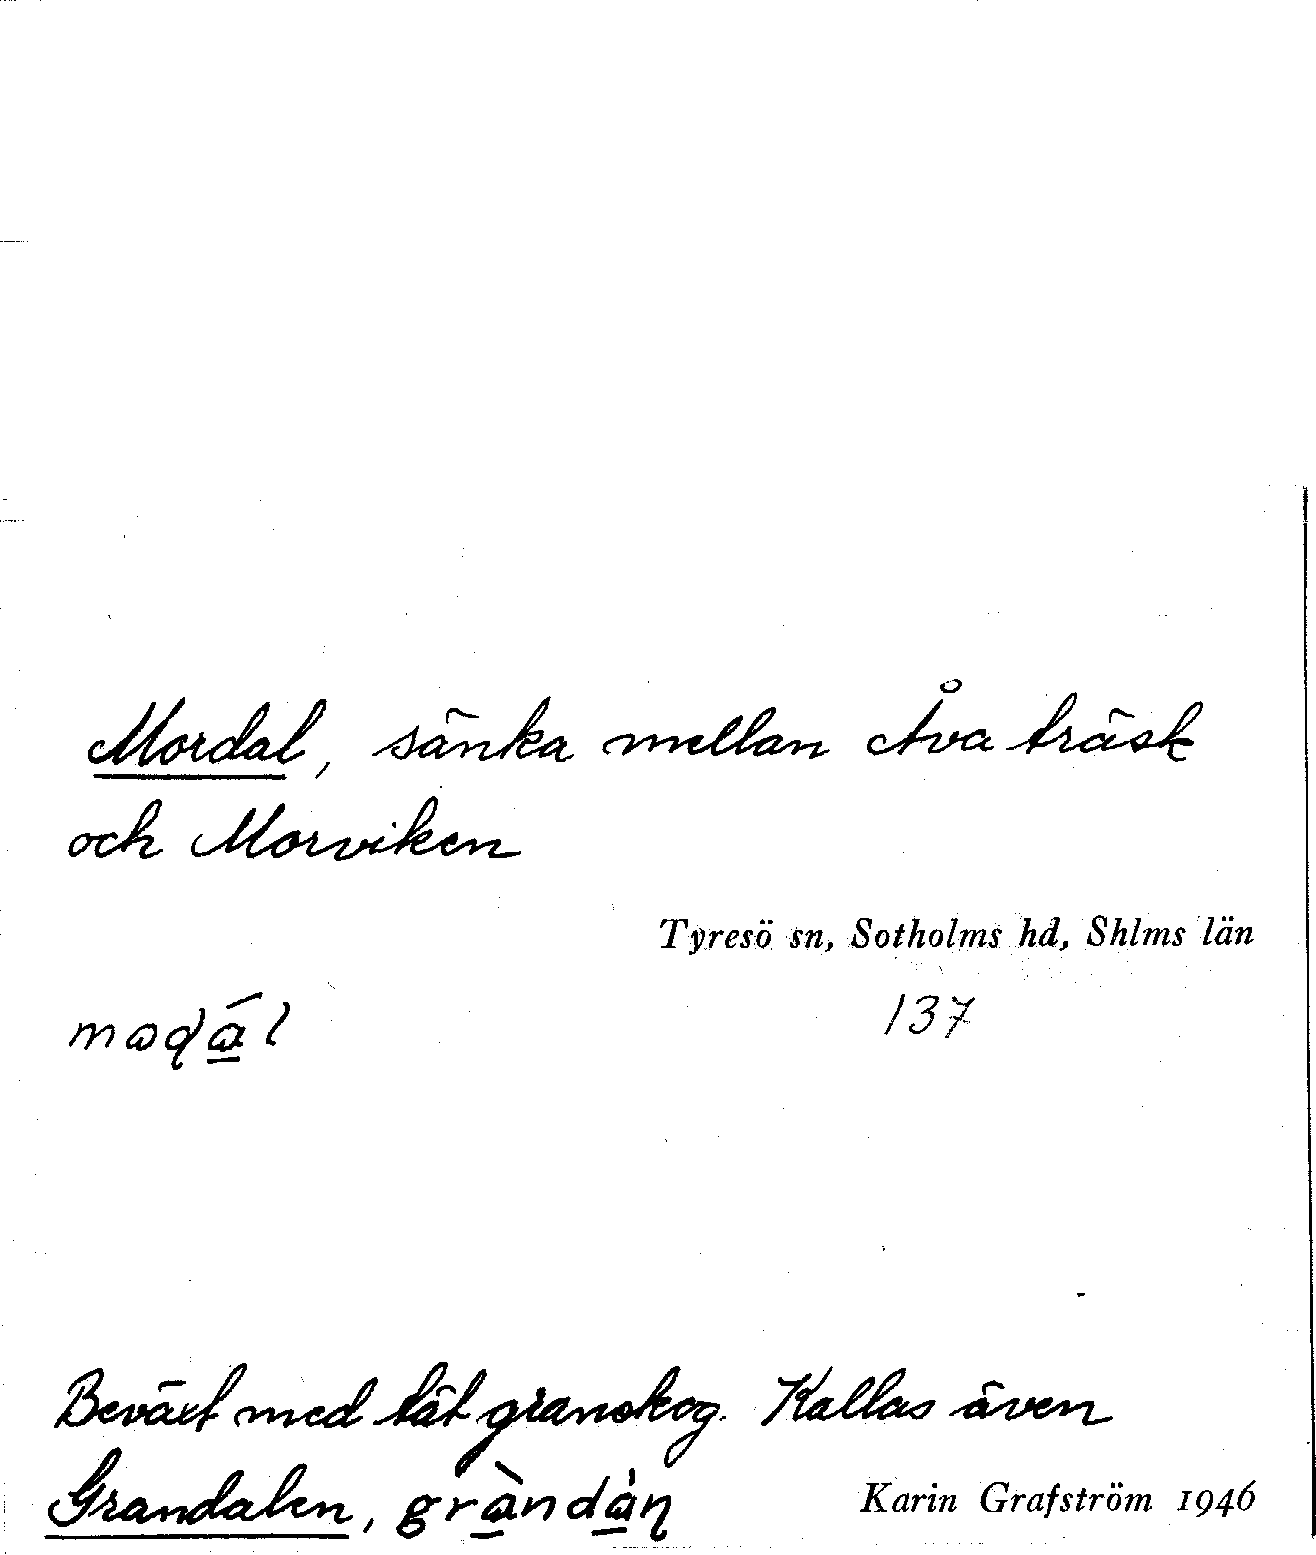 Mordal, sänka mellan Åva träsk
och Morviken
Tyresö sn, Sotholms hd, Shlms län
137
Beväxt med tät granskog. Kallas även
Grandalen,
Karin Grafström 1946